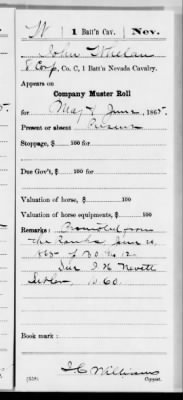 W | 1 Batt'n Cav. | Nev.
John Whelan
8 Corp., Co. C, 1 Batt'n Nevada Cavalry.
Appears on
Company Muster Roll
for May & June, 1865.
Present or absent Present
Stoppage, $ 100 for
Due Gov't, $ 100 for
Valuation of horse, $ 100
Valuation of horse equipments, $ 100
Remarks: Promoted from
the ranks June
1865
Due
Sutler, 
Book mark:
Williams
(358) Copyist.